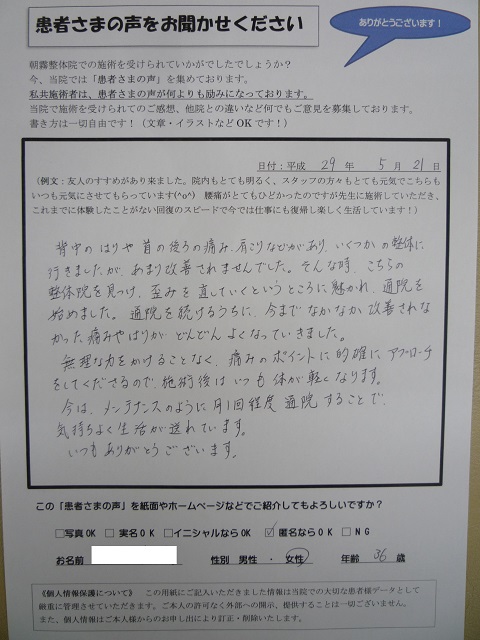 患者さまの声をお聞かせください
ありがとうございます！
朝露整体院での施術を受けられていかがでしたでしょうか？
今、当院では「患者さまの声」を集めております。
私共施術者は、患者さまの声が何よりも励みになっております。
当院で施術を受けられてのご感想、他院との違いなど何でもご意見を募集しております。
書き方は一切自由です！（文章・イラストなどＯＫです！）
日付：平成 29 年 5 月 21 日
（例文：友人のすすめがあり来ました。院内もとても明るく、スタッフの方々もとても元気でこちらも
いつも元気にさせてもらっています(^o^) 腰痛がとてもひどかったのですが先生に施術していただき、
これまでに体験したことがない回復のスピードで今では仕事にも復帰し楽しく生活しています！）
背中のはりや首の後ろの痛み、肩こりなどがあり、いくつかの整体に
行きましたが、あまり改善されませんでした。そんな時、こちらの
整体院を見つけ、歪みを直していくというところに魅かれ、通院を
始めました。通院を続けるうちに、今までなかなか改善されな
かった痛みやはりがどんどんよくなっていきました。
無理な力をかけることなく、痛みのポイントに的確にアプローチ
をしてくださるので、施術後はいつも体が軽くなります。
今は、メンテナンスのように月1回程度通院することで、
気持ちよく生活が送れています。
いつもありがとうございます。
この「患者さまの声」を紙面やホームページなどでご紹介してもよろしいですか？
□写真OK □実名ＯＫ □イニシャルならOK ☑匿名ならＯＫ □ＮＧ
お名前 性別 男性 ・ 女性 年齢 36 歳
《個人情報保護について》 この用紙にご記入いただきました情報は当院での大切な患者様データとして
厳重に管理させていただきます。ご本人の許可なく外部への開示、提供することは一切ございません。
また、個人情報はご本人様からのお申し出により訂正・削除いたします。